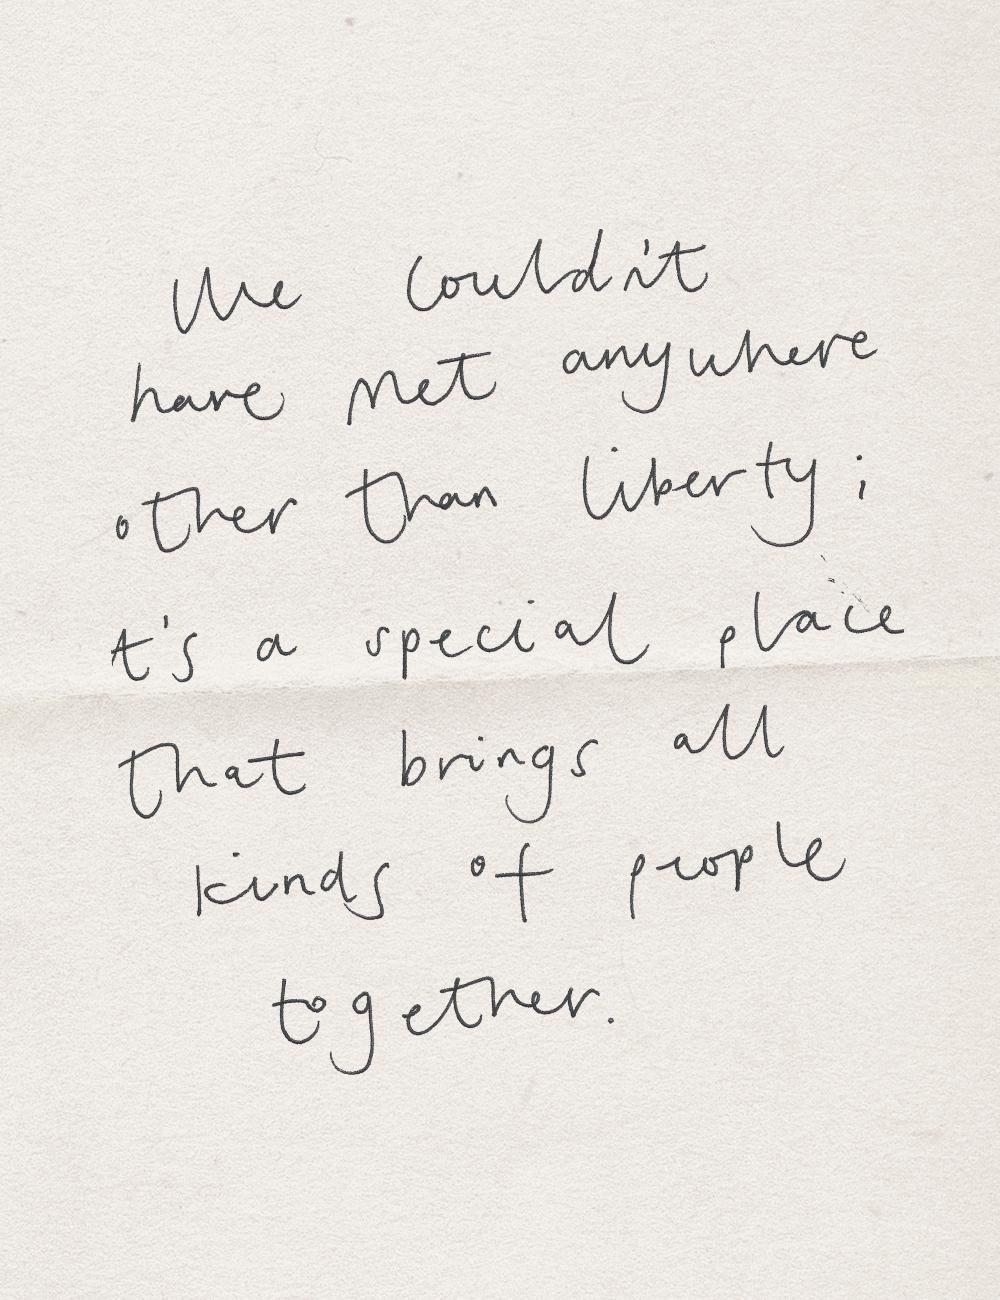 We couldn't
have met anywhere
other than liberty ;
it's a special place
that brings all
kinds of people
together.